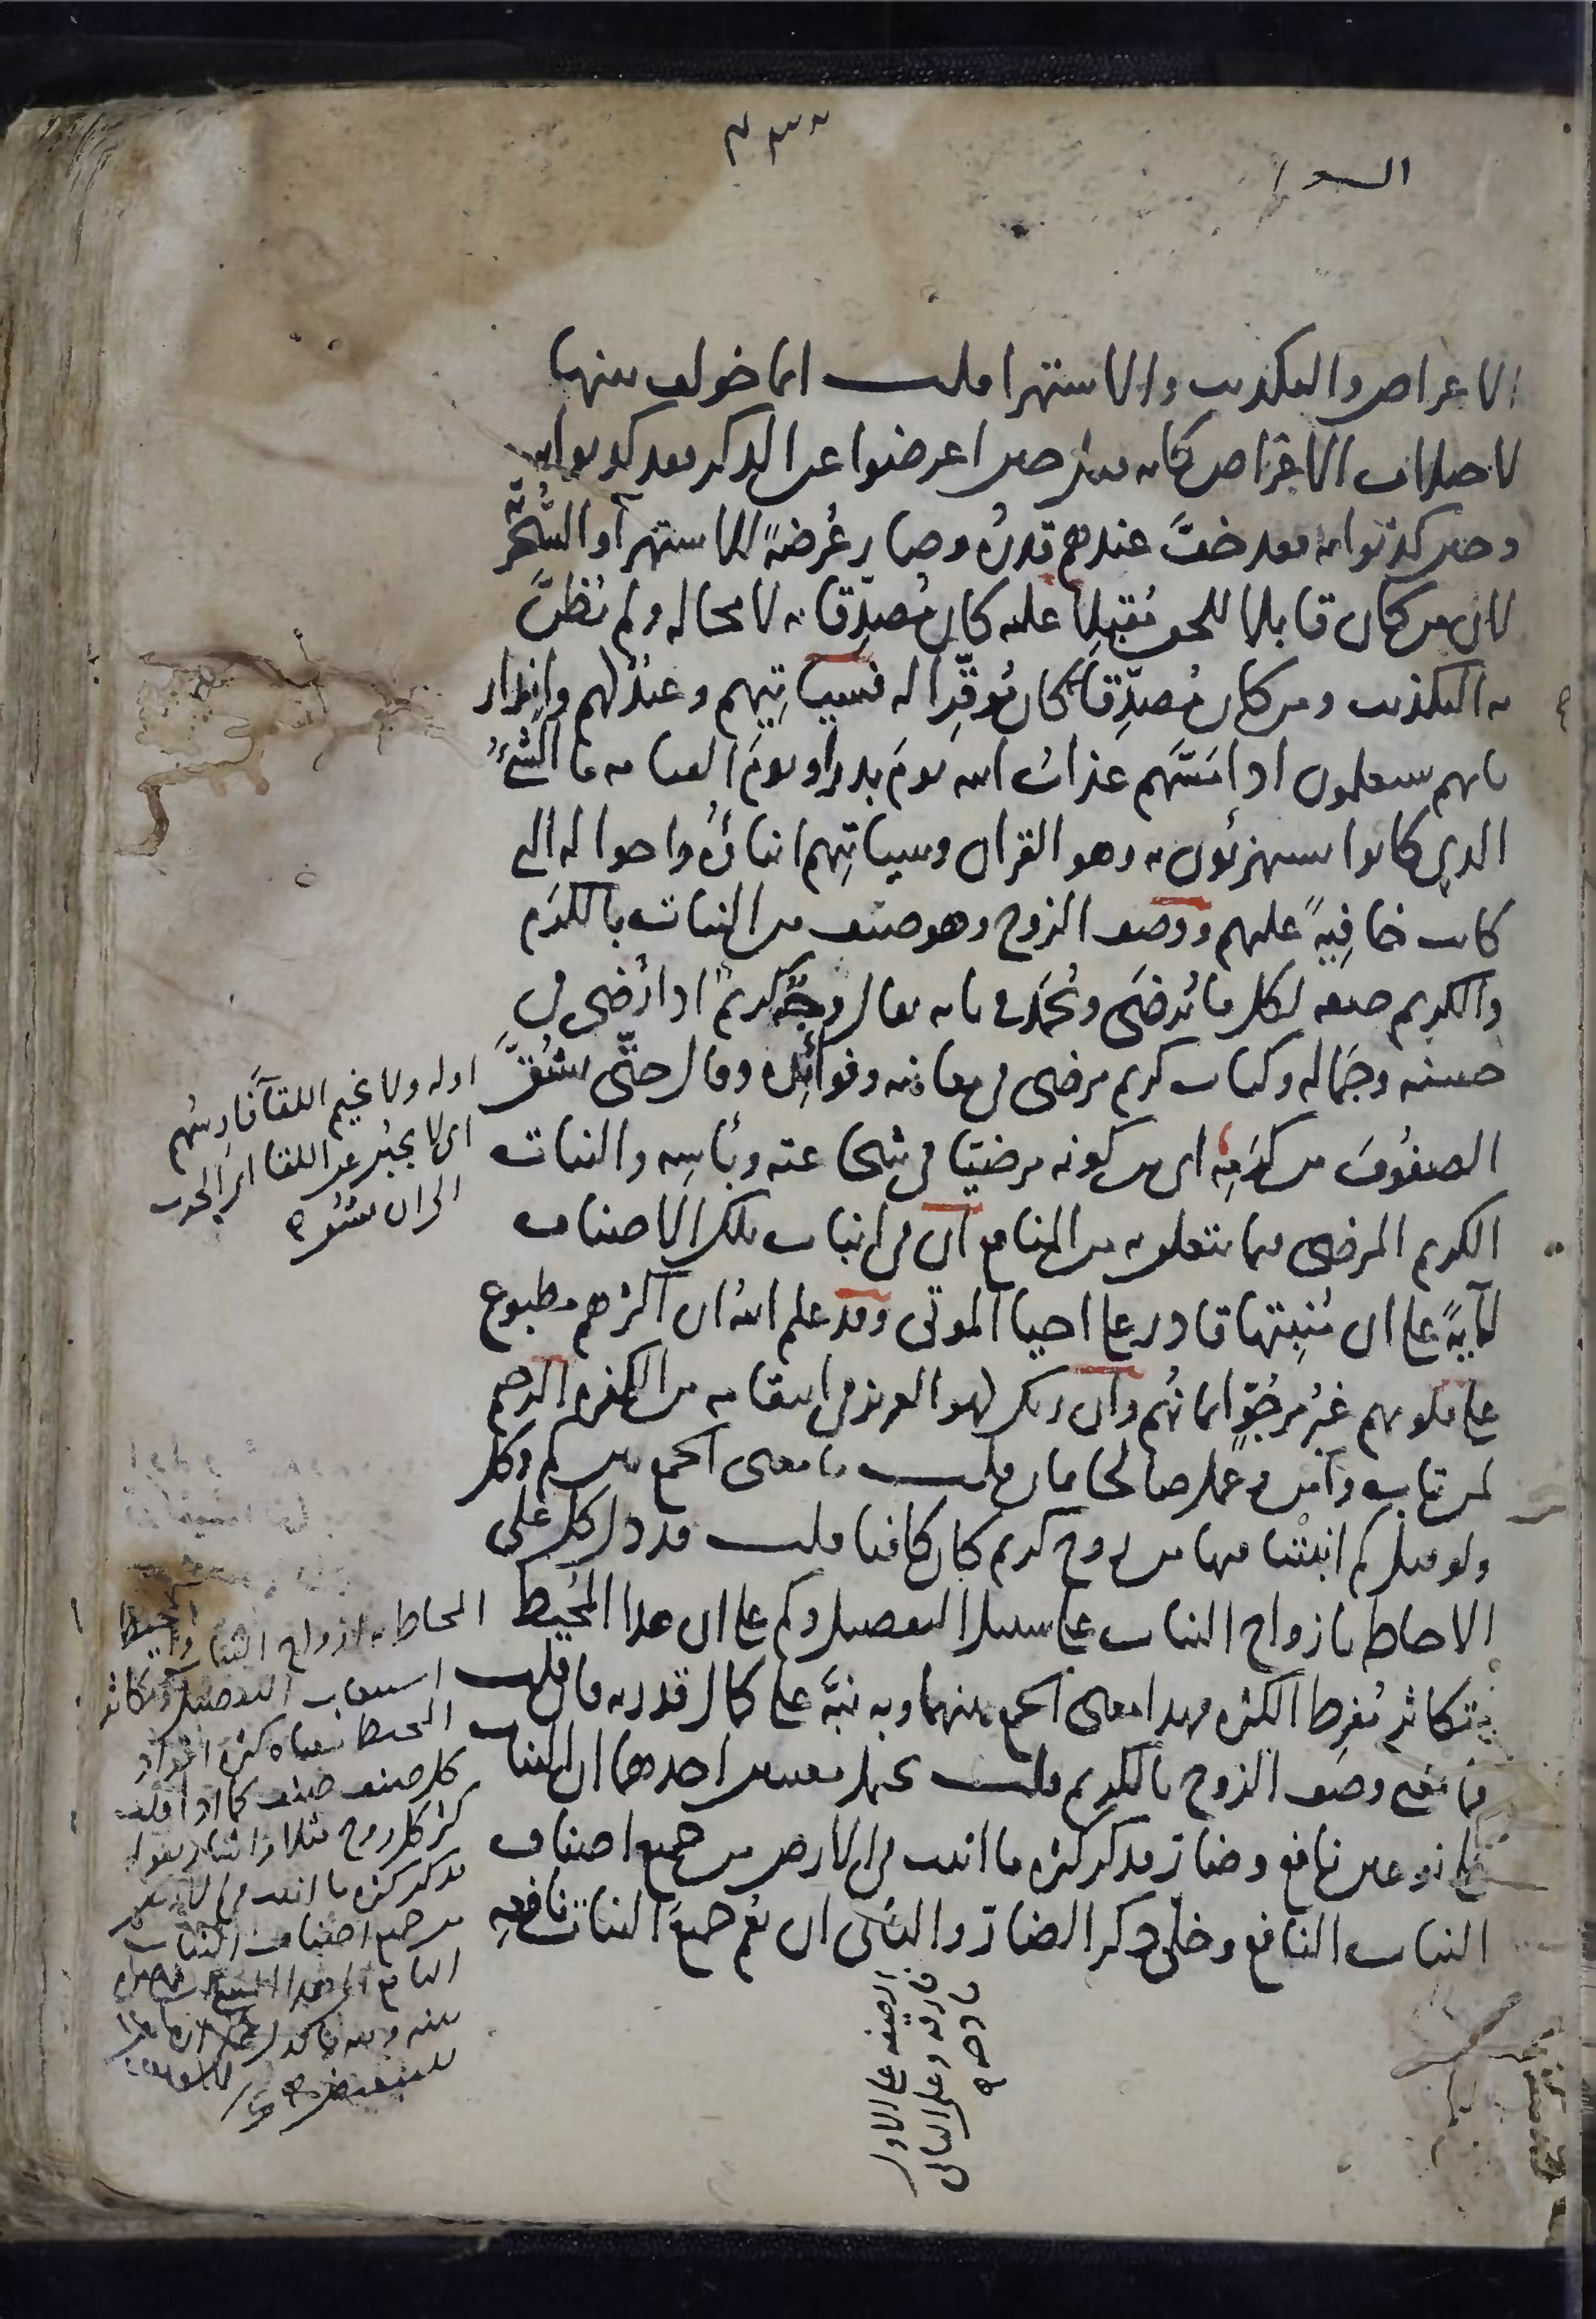 ٢٣٢
الشعرا
الاعراض والتكذيب والاستهزا قلت انما خولف بينها
لاختلاف الاغراض كانه قيل حين اعرضوا عن الذكر فقد كذبوا به
وحين كذبوا به فقد خفَّ عندهم قدرُه وصار عُرضةً للاستهزآ والسُّخريّة
لان من كان قابلا للحق مُقبِلا عليه كان مُصدِّقا به لا محاله ولم يُظنَّ
به التكذيب ومن كان مُصدِّقا به كان مُوقِّرا له فسياتيهم وعيدٌ لهم وانذار
بانهم سيعلمون اذا مَسَّهم عذابُ الله يومَ بدر او يومَ القيامه ما الشيءُ
الذي كانوا يستهزئون به وهو القران وسياتيهم انباؤُه واحواله التي
كانت خافيةً عليهم ووصف الزوج وهو صنف من النبات بالكرم
والكريم صفه لكل ما يُرضَى ويُحمَد في بابه يقال وجهٌ كريمٌ اذا رُضي في
حسنه وجماله وكتاب كريم مرضي في معانيه وفوائِده وقال حتّى يشُقَّ
الصفوفَ من كرمِه اي من كونه مرضيّا في شجاعته وبأسِه والنبات
الكريم المرضي فيما يتعلق به من المنافع ان في انبات تلك الاصناف
لآيةً على ان مُنبِتها قادر على احيا الموتى وقد علم الله ان اكثرهم مطبوع
على قلوبهم غيرُ مرجُوٍّ ايمانُهم وان ربك لهو العزيز في انتقامه من الكفره الرحيم
لمن تاب وآمن وعمل صالحا فان قلت ما معنى الجمع بين كم وكل
ولو قيل كم انبتْنا فيها من زوج كريم كان كافيا قلت قد دل كل على
الاحاطه بازواج النبات على سبيل التفصيل وكم على ان هذا المُحيط
متكاثر مُفرِط الكثره فهذا معنى الجمع بينهما وبه نبَّه على كمال قدرته فان قلت
فما معنى وصف الزوج بالكريم قلت يحتمل معنيين احدهما ان النبات
على نوعين نافع وضار فذكر كثره ما انبت في الارض من جميع اصناف
النبات النافع وخلّى ذكر الضارّ والثاني ان يُعم جميعَ النبات نافعِه
اوله ولا يخيم اللقآ فارسُهم
اي لا يجبُن عن اللقا اي الحرب
الى ان يشق ه
المحاط به ازواج النبات واحيط
استيعاب التفصيل وتكاثر
المحيط معناه كثره افراد
كل صنف صنف كما اذا قلت
كثر كل زوج مثلا
فذكر كثره ما انبت في الارض
من جميع اصناف النبات
الصفه على الاول
فارقه وعلى الثاني
مادحه ه